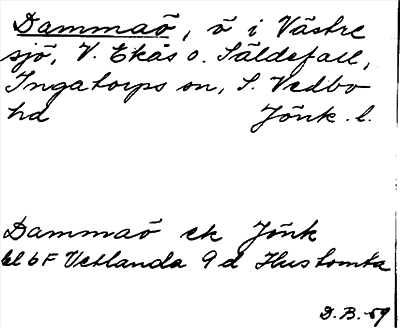 Dammaö, ö i Västre
sjö, V. Ekås o. Säldefall,
Ingatorps sn, S. Vedbo
hd Jönk. l.
Dammaö ek Jönk
bl 6F Vetlanda 9 d Hustomta
D.B. -59